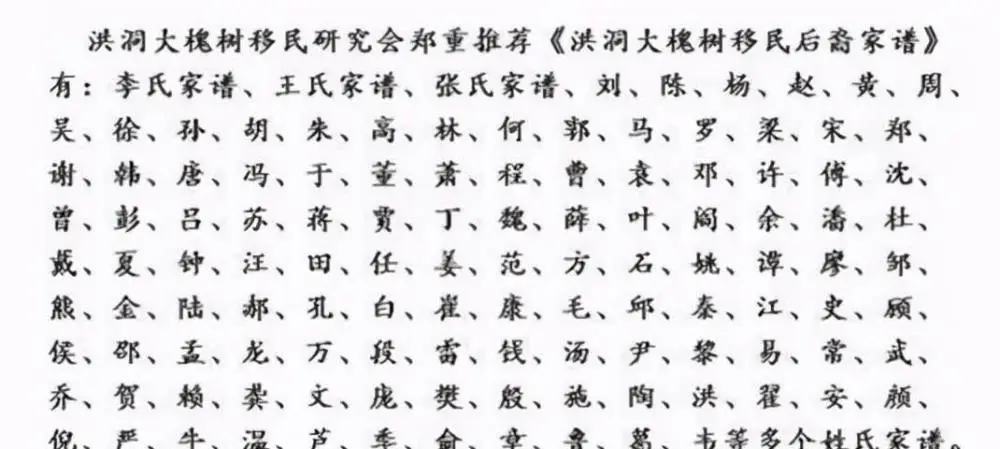 洪洞大槐树移民研究会郑重推荐《洪洞大槐树移民后裔家谱》
有：李氏家谱、王氏家谱、张氏家谱、刘、陈、杨、赵、黄、周、
吴、徐、孙、胡、朱、高、林、何、郭、马、罗、梁、宋、郑、
谢、韩、唐、冯、于、董、萧、程、曹、袁、邓、许、傅、沈、
曾、彭、吕、苏、蒋、贾、丁、魏、薛、叶、阎、余、潘、杜、
戴、夏、钟、汪、田、任、姜、范、方、石、姚、谭、廖、邹、
熊、金、陆、郝、孔、白、崔、康、毛、邱、秦、江、史、顾、
侯、邵、孟、龙、万、段、雷、钱、汤、尹、黎、易、常、武、
乔、贺、赖、龚、文、庞、樊、殷、施、陶、洪、翟、安、颜、
倪、严、牛、温、芦、季、俞、章、鲁、葛、韦等多个姓氏家谱。